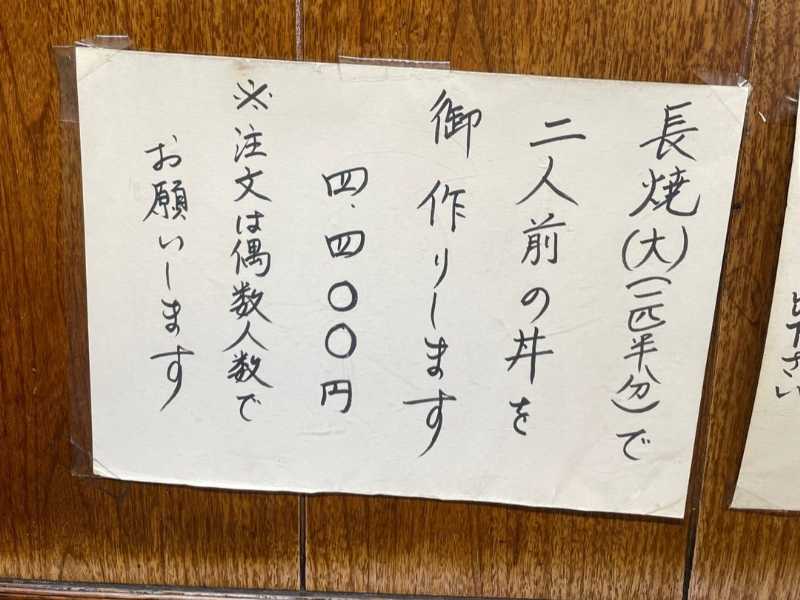 長焼(大)(一匹半分)で
二人前の丼を
御作りします
四.四〇〇円
※注文は偶数人数で
お願いします
下さい